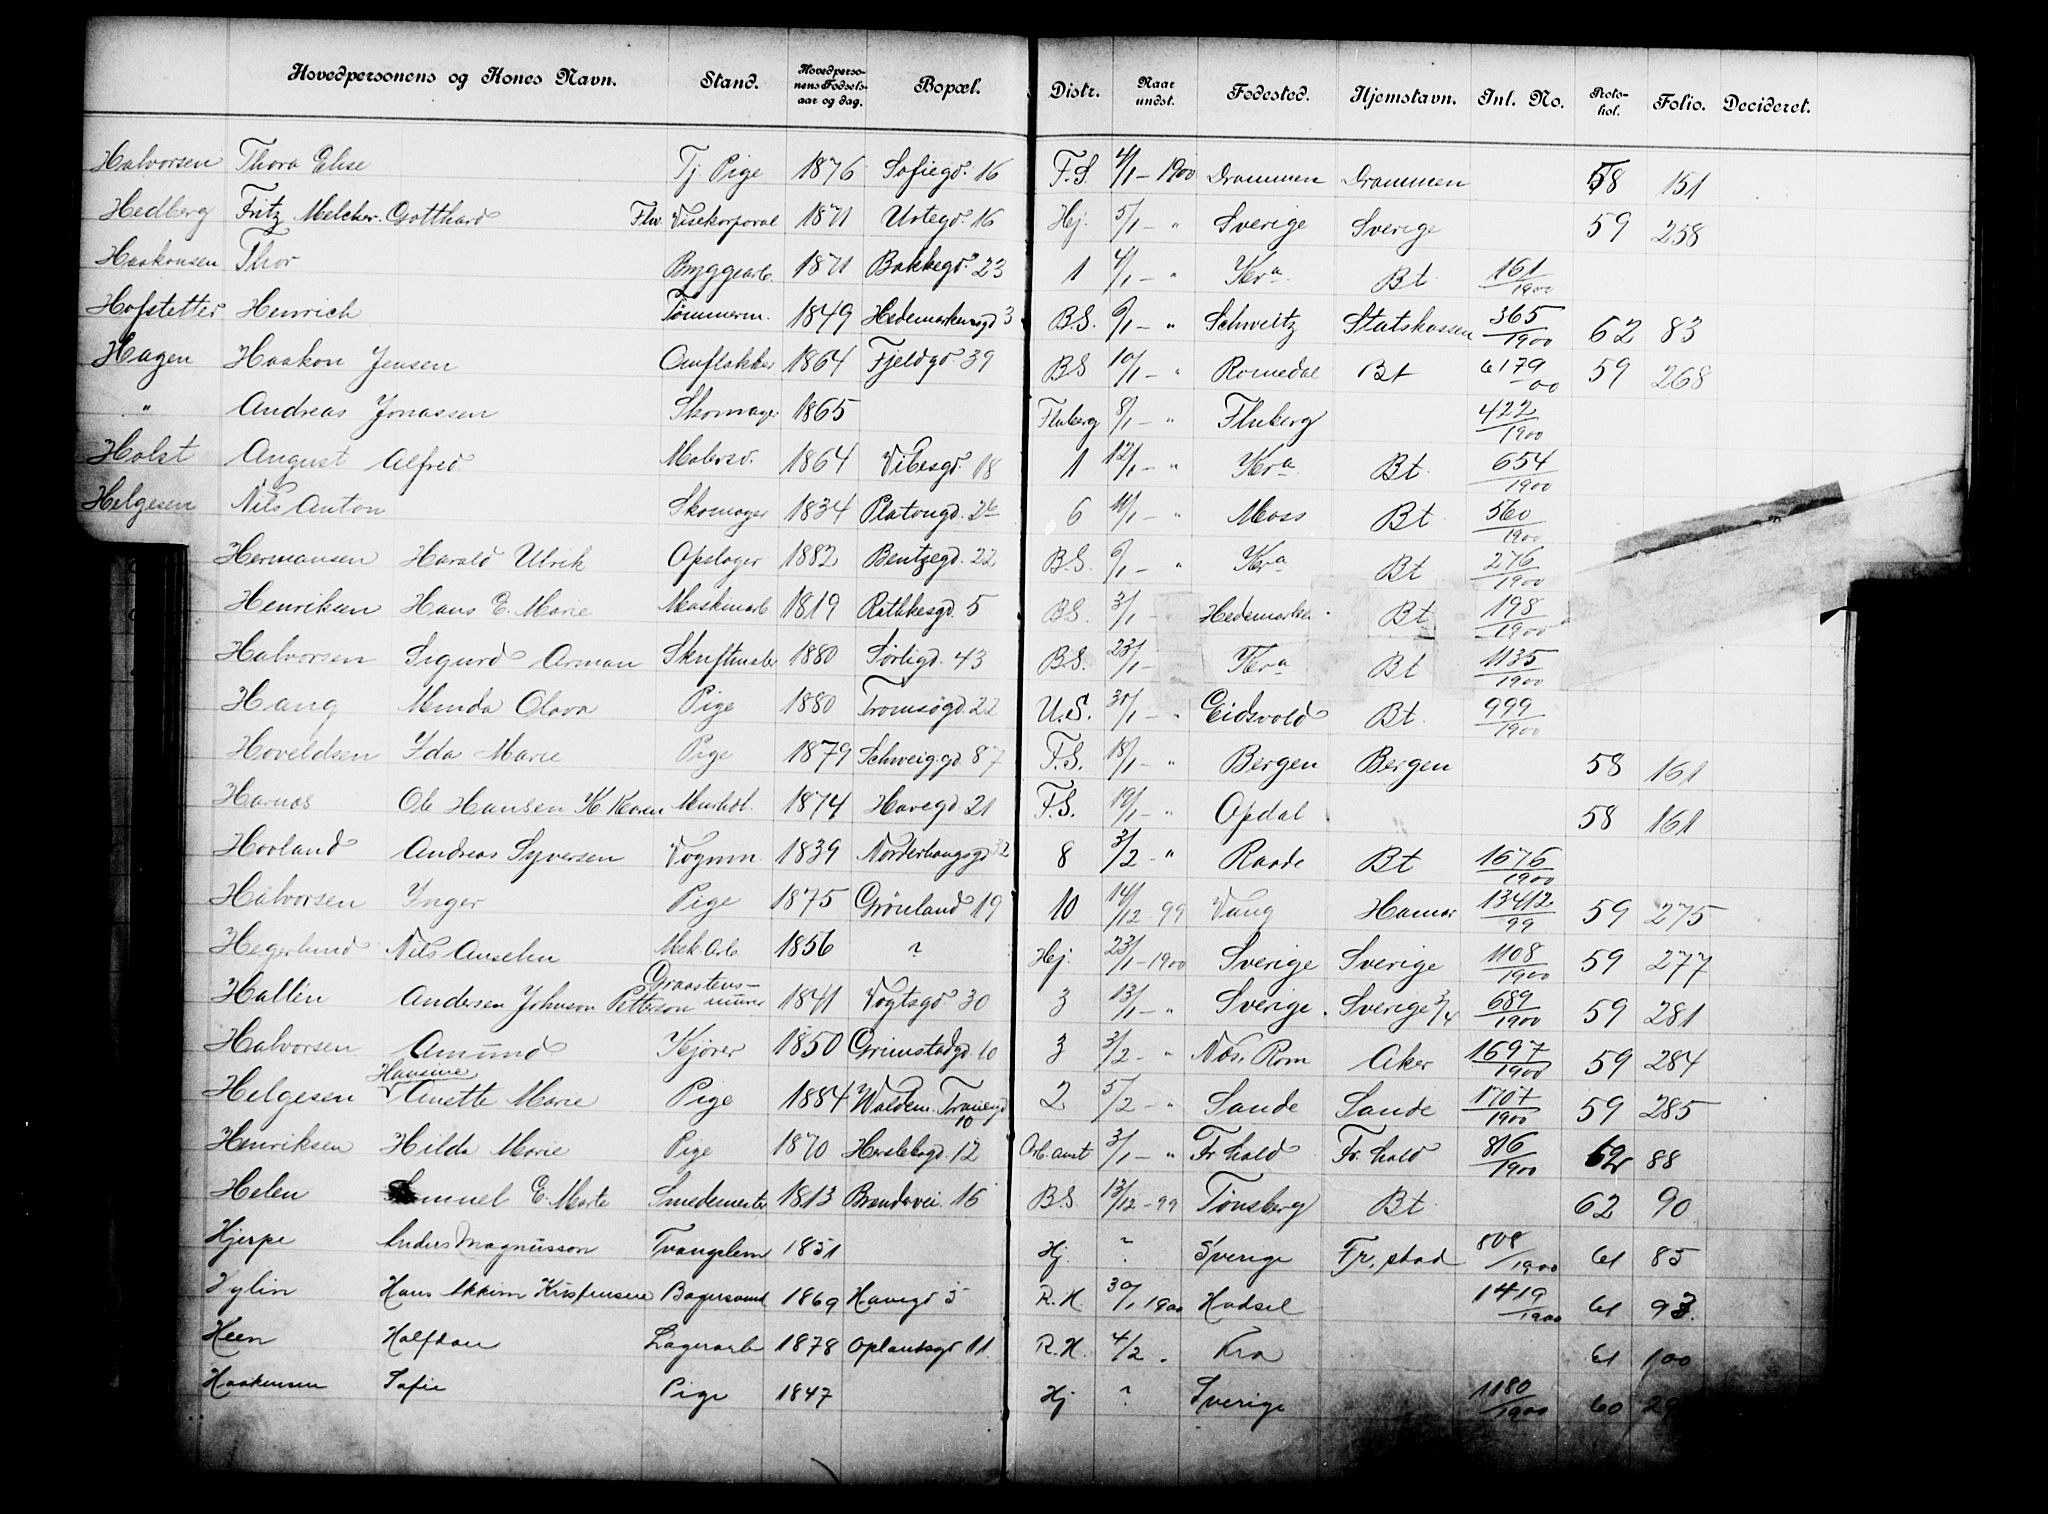 Hovedpersonens og Kones Navn. Stand. Hovedperso-nens Fødsels-aar og dag. Bopæl. Distr. Naar undst. Fødested. Hjemstavn. Inl. No. Proto-kol. Folio. Decideret.
Halvorsen Thora Elise Tj Pige 1876 Sofiegd. 16 F.S. 4/1 - 1900 Drammen Drammen 58 151
Hedberg Fritz Melcher Gotthard Flw. Visekorporal 1871 Urtegd. 16 Hj. 5/1 - " Sverige Sverige 59 258
Haakonsen Thor Byggearb. 1871 Bakkegd. 23 1 4/1 - " Kra Bt 161/1900
Hofstetter Henrich Tømmerm. 1849 Hedemarkensgd 3 B.S. 6/1 - " Schweitz Statskassen 365/1900 62 83
Hagen Haakon Jensen Omflakker 1864 Fjeldgd 39 BS 10/1 - " Romedal Bt 6179/00 59 268
" Andreas Jonassen Skomager 1865 Fluberg 8/1 - " Fluberg 422/1900
Holst August Alfred Malersv. 1864 Vibesgd. 18 1 12/1 - " Kra Bt. 654/1900
Helgesen Nils Anton Skomager 1834 Platougd. 2b 6 11/1 - " Moss Bt 560/1900
Hermansen Harald Ulrik Opslager 1882 Bentzegd. 22 B.S. 6/1 - " Kra Bt 276/1900
Henriksen Hans E. Marie Maskinarb 1819 Rathkesgd. 5 BS. 3/1 - Hedemarken Bt 198/1900
Halvorsen Sigurd Arman Skriftmaler 1880 Sørligd. 43 B.S. 23/1 - Kra Bt 1135/1900
Haug Minda Olava Pige 1880 Tromsøgd. 22 U.S. 30/1 - " Eidsvold Bt. 999/1900
Hoveldsen Ida Marie Pige 1879 Schweig.gd. 87 F.S. 18/1 - " Bergen Bergen 58 161
Harnas Ole Hansen K Karen Murhdl. 1874 Havegd 21 F.S. 19/1 - " Opdal " 58 161
Hovland Andreas Syversen Vognm. 1839 Norderhougsgd 32 8 3/2 - " Raade Bt 1676/1900
Halvorsen Inger Pige 1875 Grønland 19 10 14/12 - 99 Vang Hamar 13412/99 59 275
Hegerlund Nils Anselm Mek. Arb. 1856 ? Hj. 23/1 - 1900 Sverige Sverige 1108/1900 59 277
Hallén Andersen Johnson Petterson Graastens-murer 1841 Vogtsgd 30 3 13/1 - " Sverige. Sverige 3/4 689/1900 59 281
Halvorsen Amund Kjører 1850 Grimstadgd. 10 3 3/2 - " Næs. Rom Aker 1697/1900 59 284
Helgesen Hansine Anette Marie Pige 1884 Waldem. Tranegd 10 2 5/2 - " Sande Sande 1707/1900 59 285
Henriksen Hilda Marie Pige 1870 Herslebsgd. 12 Arb. anst 3/1 - " Fr. hald Fr. hald 816/1900 62 88
Helen Samuel E. Marte Smedemester 1813 Brenderivei. 16 B.S 13/12 - 99 Tønsberg Bt 62 90
Hjerpe Anders Magnusson Tvangslem 1851 Hj. ? Sverige Fr, stad 808/1900 61 85
Hylin Hans Akkim Kristensen Bagersvend 1869 Havegd 5 R.H. 30/1 1900 Hadsel 1419/1900 61 93.
Heen Halfdan Lagerarb 1878 Oplandsgd 11. R.H. 4/2 " Kra 61 100
Haakensen Sofie Pige 1847 Hj ? Sverige 1180/1900 60